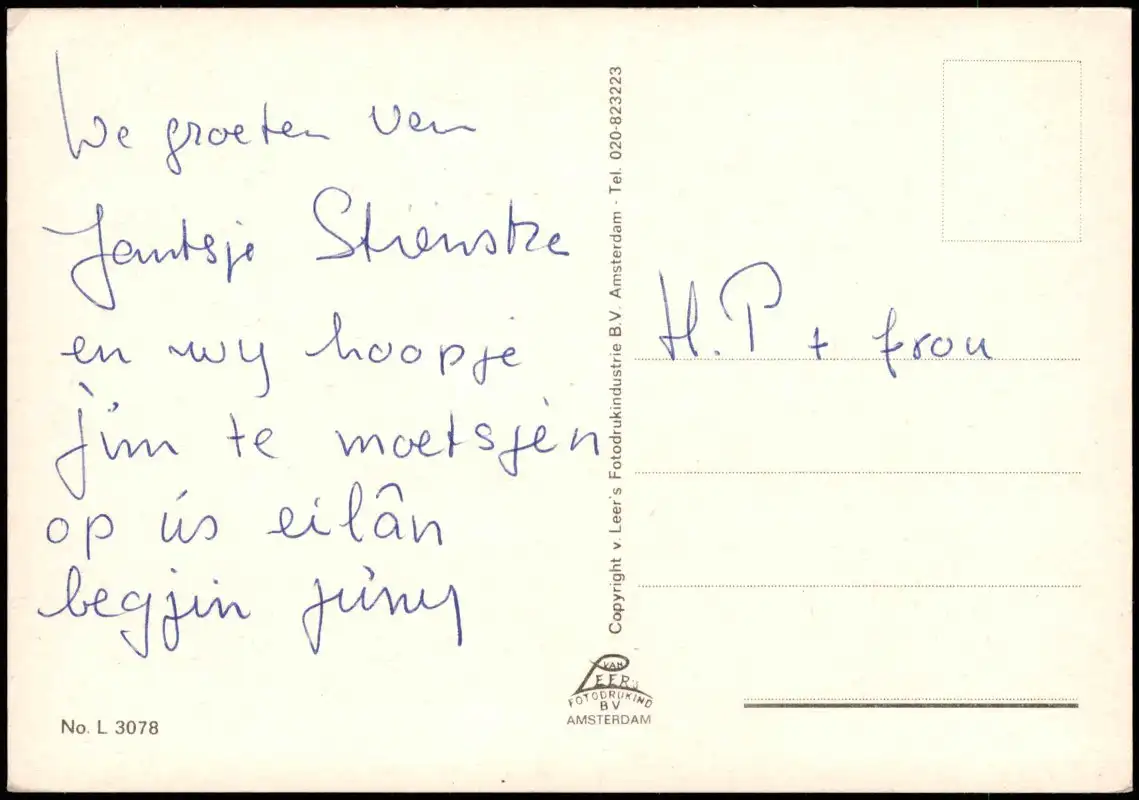 We groeten van
Jantsje Stienstra
en wy hoopje
jim te moetsjen
op ús eilân
begjin juny
No. L 3078
Copyright v. Leer's Fotodrukindustrie B.V. Amsterdam - Tel. 020-823223
VAN
LEER'S
FOTODRUKIND
BV
AMSTERDAM
H.P + frou